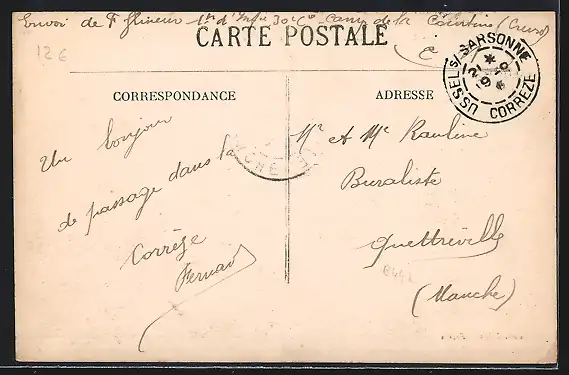 Envoi de F Ghineur 1er d'Infie 30e Cie Camp de la Courtine (Creuse)
CARTE POSTALE
12 €
USSEL S/ SARSONNE
CORREZE
CORRESPONDANCE
ADRESSE
Un bonjour
de passage dans la
Corrèze
Fernand
Mr et Me Rauline
Buraliste
Quettreville
(Manche)